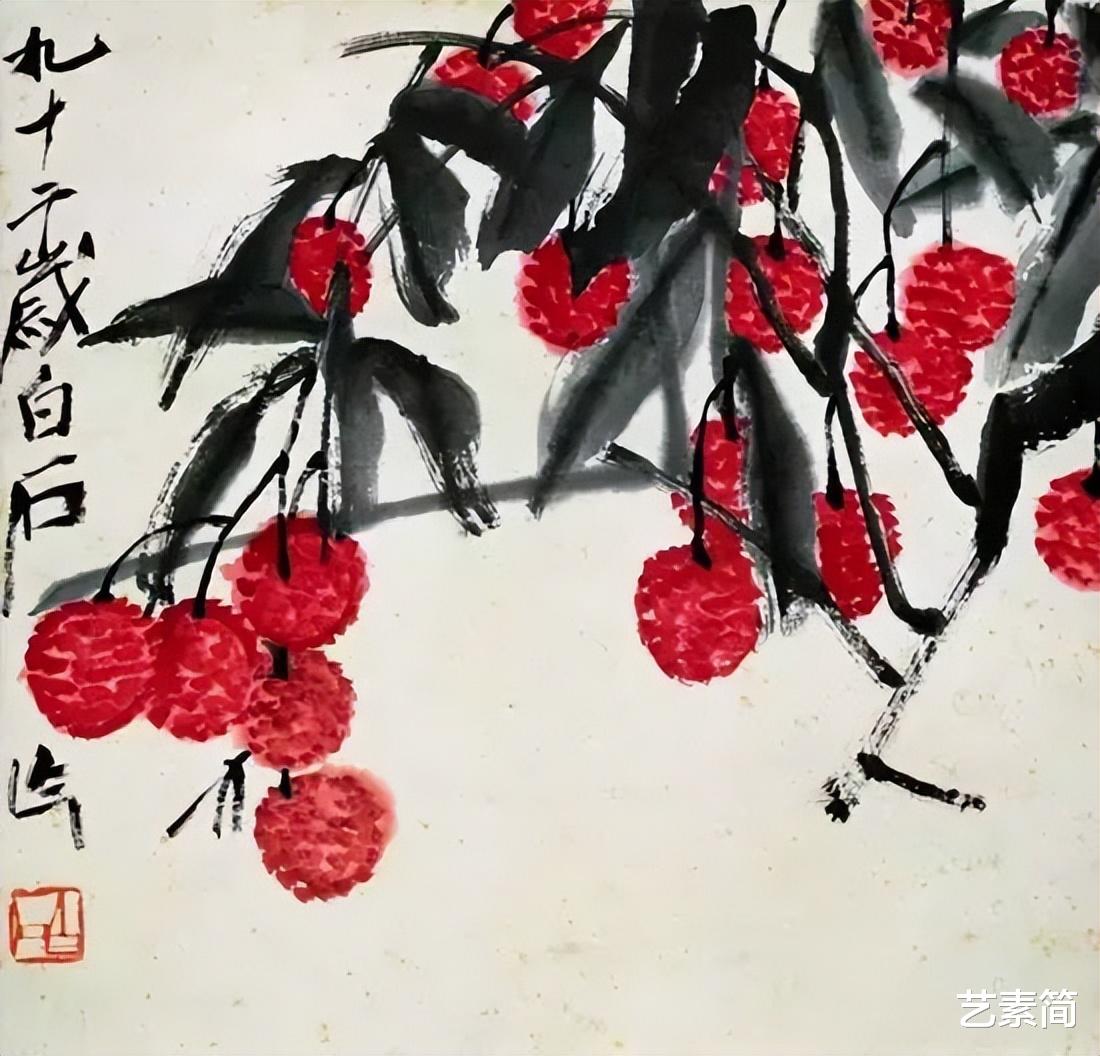 九十二歲白石
作
艺素简